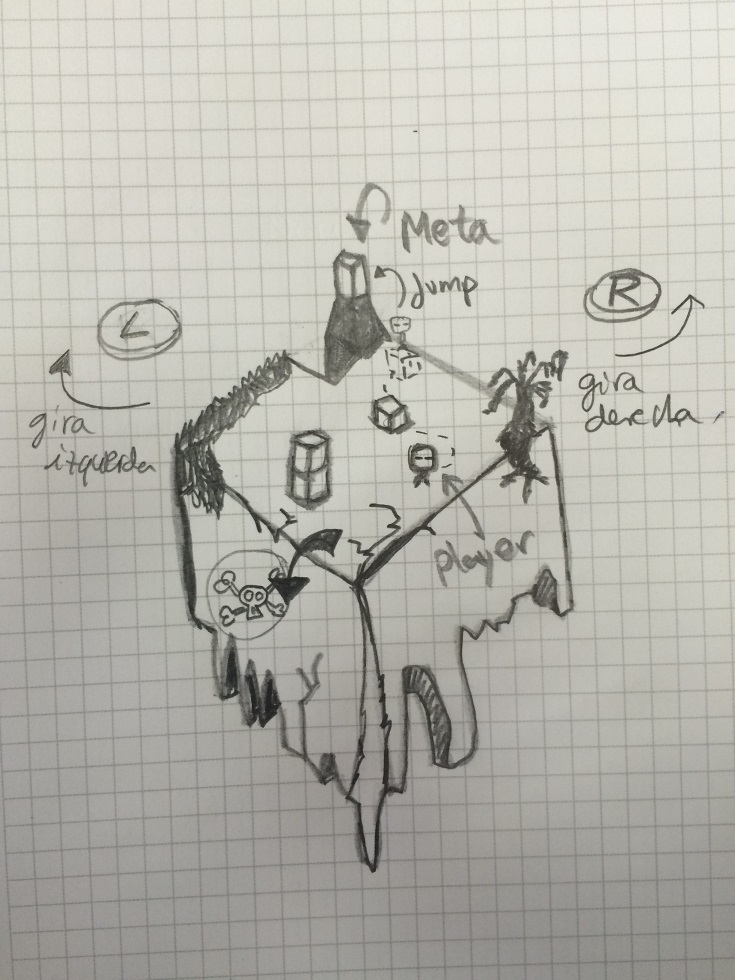 Meta
Jump
L
R
gira
izquerda
gira
derecha
player